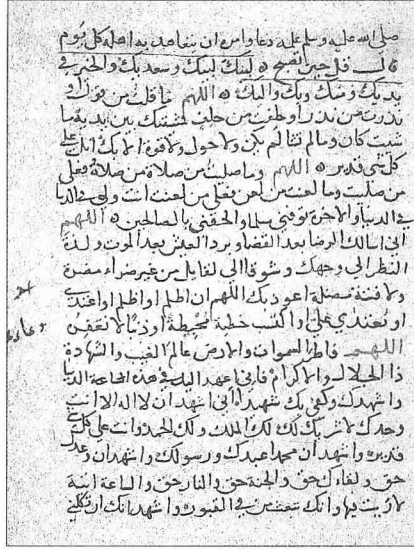 صلى الله عليه وسلم علمه دعا وامره ان يتعاهد به اهله كل يوم
قال قل حين تصبح لبيك اللهم لبيك لبيك وسعديك والخير في
يديك ومنك وبك واليك اللهم ما قلت من قول او
نذرت من نذر او حلفت من حلف فمشيتك بين يديه ما
شيت كان وما لم تشا لم يكن ولا حول ولا قوة الا بك انك على
كل شي قدير اللهم وما صليت من صلاة فعلى
من صليت وما لعنت من لعن فعلى من لعنت انت وليي في الدنيا
والاخرة توفني مسلما والحقني بالصالحين اللهم
اني اسالك الرضا بعد القضا وبرد العيش بعد الموت ولذة
النظر الى وجهك وشوقا الى لقايك من غير ضراء مضرة
ولا فتنة مضلة اعوذ بك اللهم ان اظلم او اظلم او اعتدي
او يعتدى علي او اكتسب خطية محيطة او ذنبا لا تغفره
اللهم فاطر السموات والارض عالم الغيب والشهادة
ذا الجلال والاكرام فاني اعهد اليك في هذه الحياة الدنيا
واشهدك وكفى بك شهيدا اني اشهد ان لا اله الا انت
وحدك لا شريك لك لك الملك ولك الحمد وانت على كل شي
قدير واشهد ان محمدا عبدك ورسولك واشهد ان وعدك
حق ولقاءك حق والجنة حق والنار حق والساعة اتية
لا ريب فيها وانك تبعث من في القبور واشهد انك ان تكلني